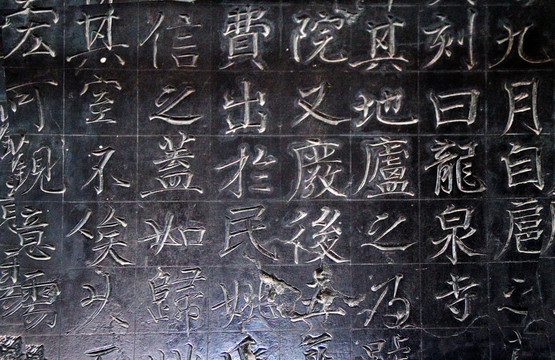 九月自扈之
刻曰龍泉寺
其地廬之乃
院又廢後
費出於民姚
信之蓋如歸
其室不俟
宏可觀意